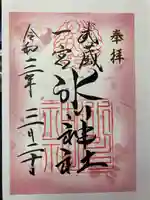 奉拝
武蔵
一宮
氷川神社
令和三年
三月二十日